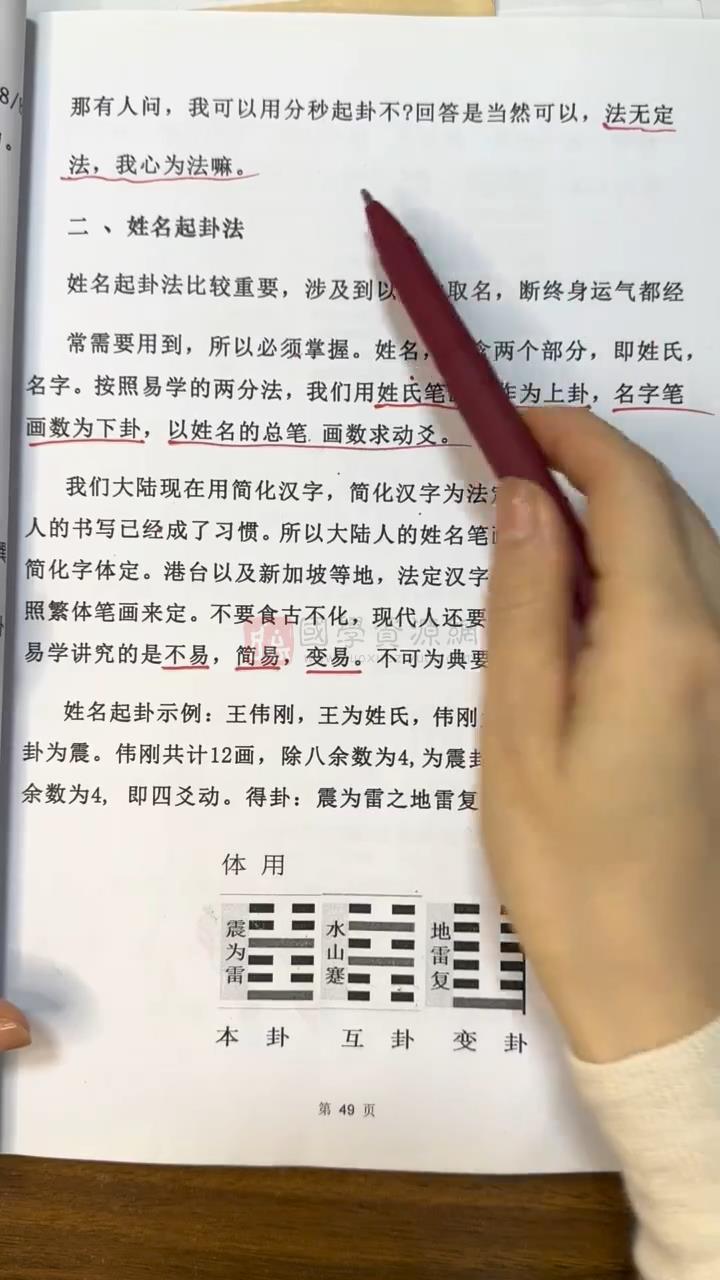 那有人问，我可以用分秒起卦不?回答是当然可以，法无定
法，我心为法嘛。
二 、姓名起卦法
姓名起卦法比较重要，涉及到以 取名，断终身运气都经
常需要用到，所以必须掌握。姓名， 含两个部分，即姓氏，
名字。按照易学的两分法，我们用姓氏笔 作为上卦，名字笔
画数为下卦，以姓名的总笔 画数求动爻。
我们大陆现在用简化汉字，简化汉字为法定
人的书写已经成了习惯。所以大陆人的姓名笔画
简化字体定。港台以及新加坡等地，法定汉字
照繁体笔画来定。不要食古不化，现代人还要
易学讲究的是不易，简易，变易。不可为典要
姓名起卦示例：王伟刚，王为姓氏，伟刚
卦为震。伟刚共计12画，除八余数为4,为震卦
余数为4, 即四爻动。得卦：震为雷之地雷复
体 用
震为雷
水山蹇
地雷复
本 卦 互 卦 变 卦
第 49 页
國學資源網
8/8